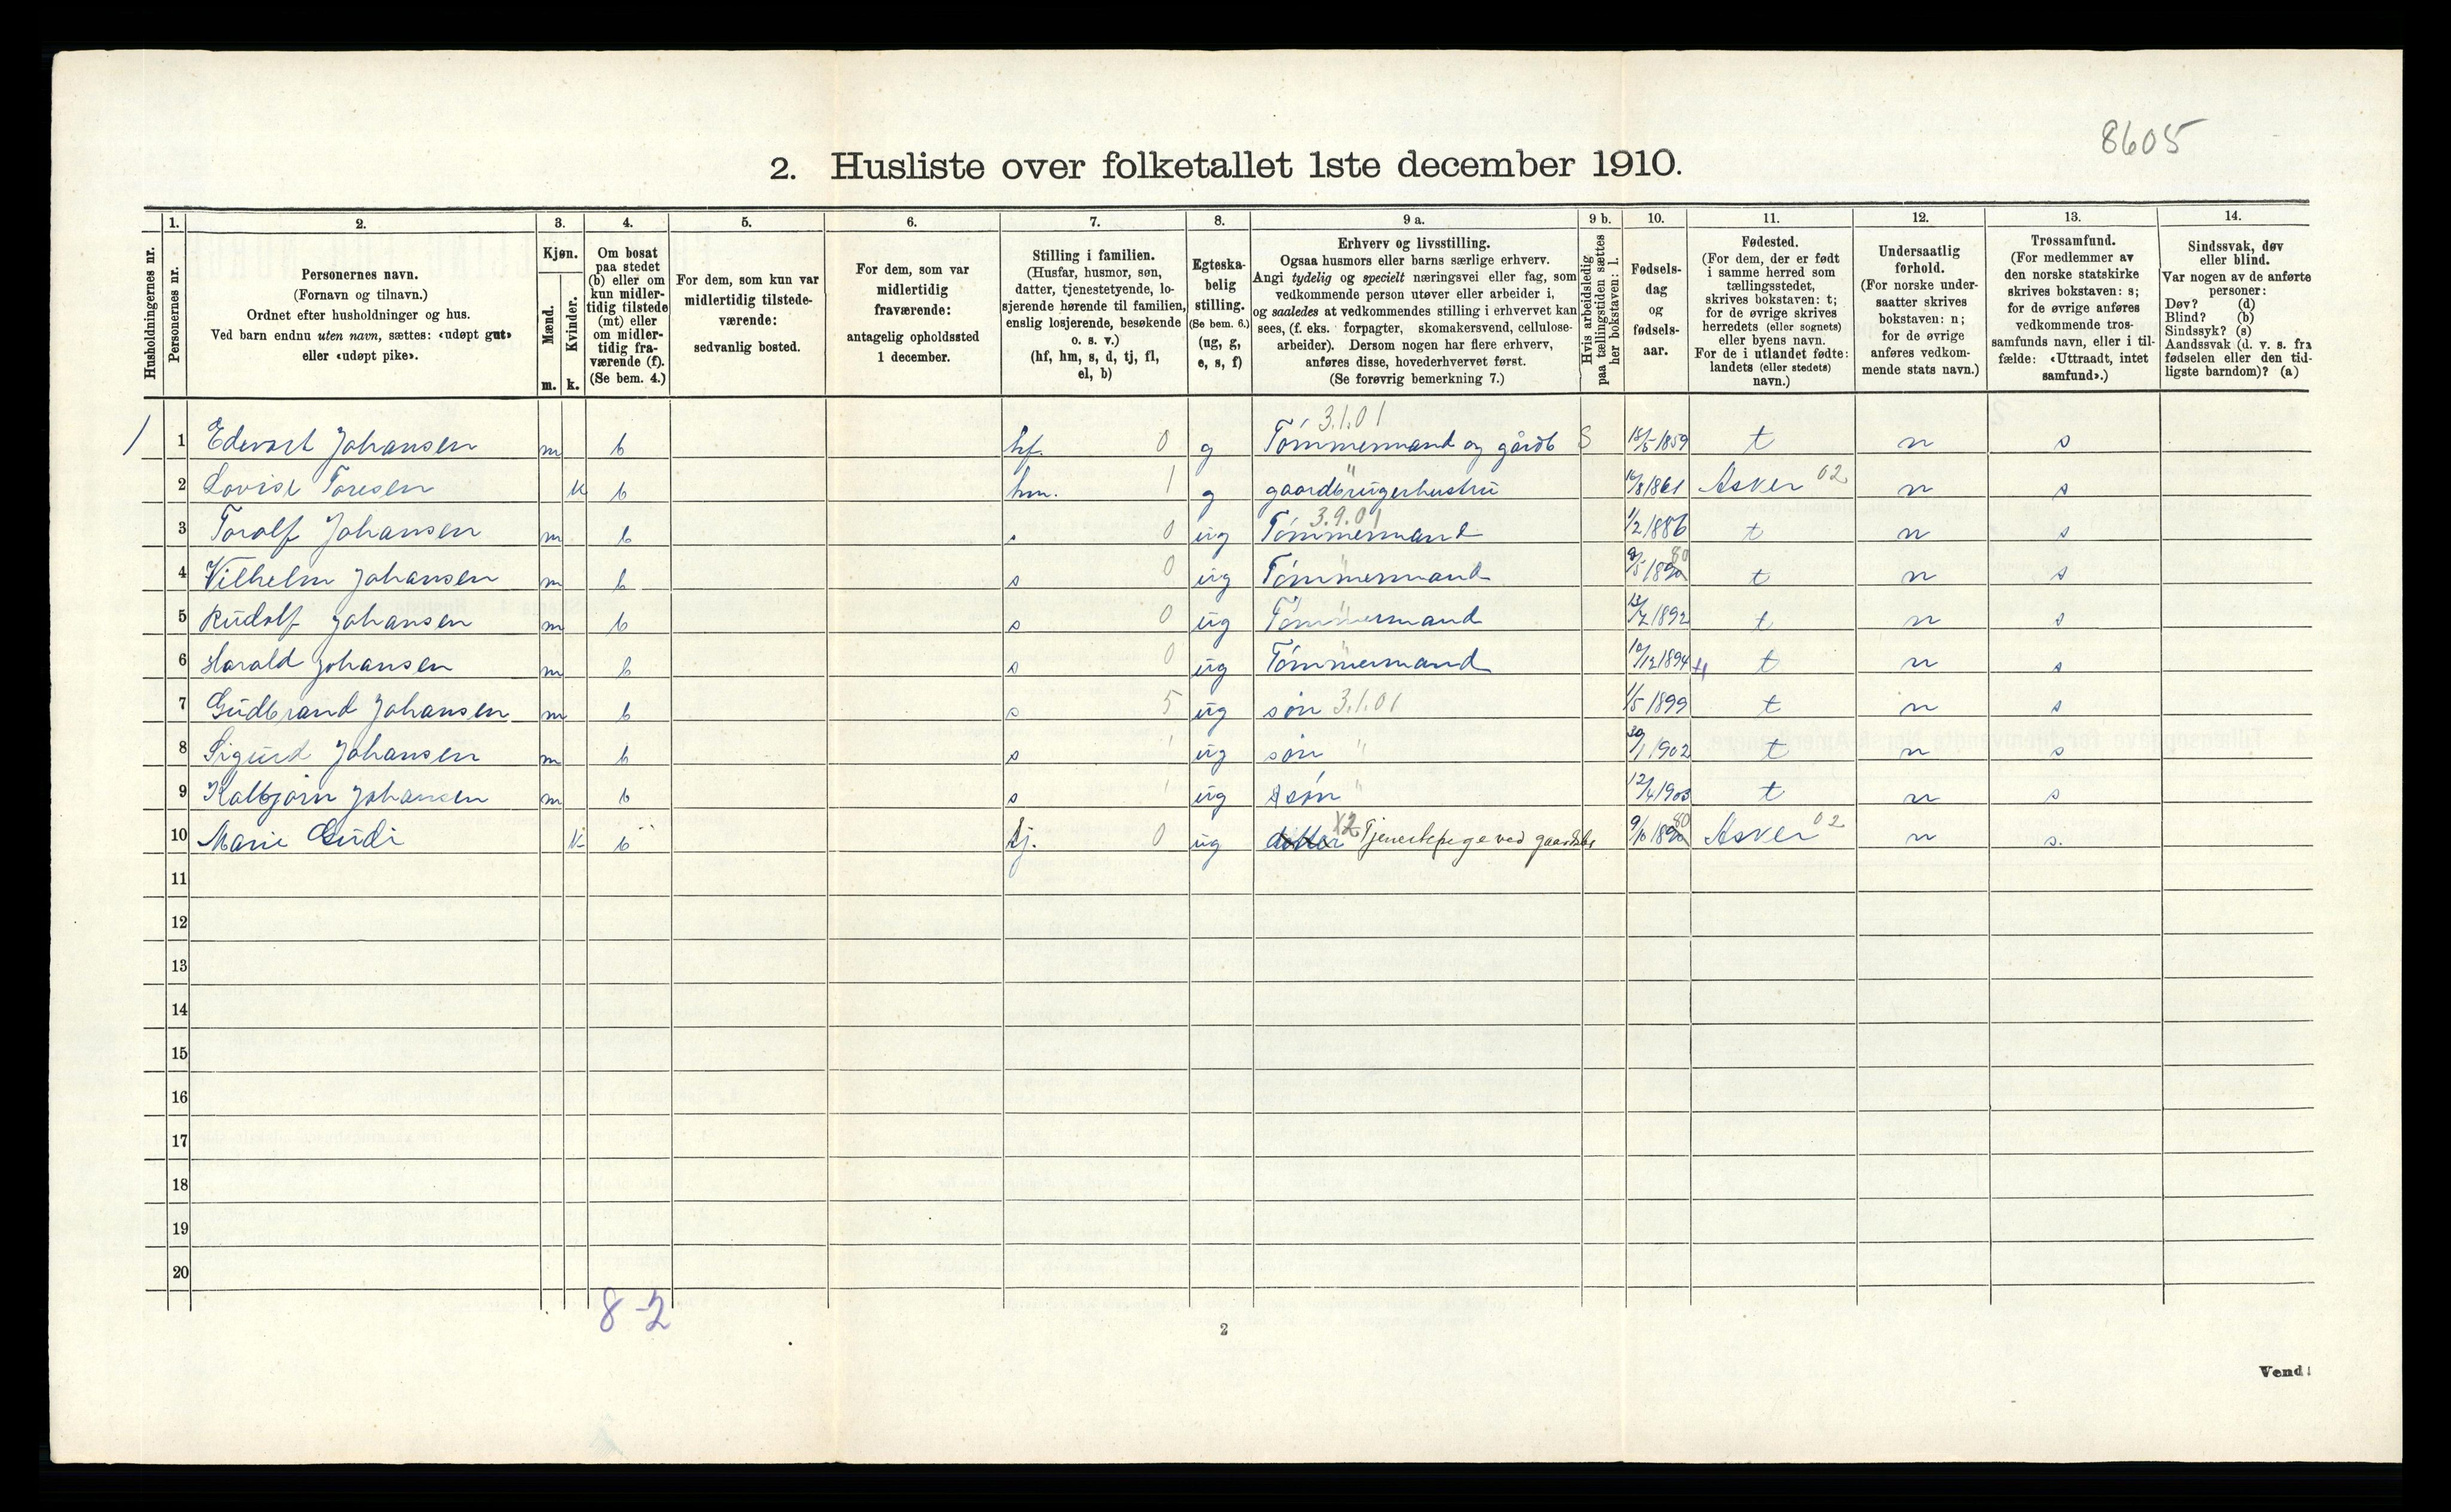 8605
2. Husliste over folketallet 1ste december 1910.
Husholdningernes nr.
1.
Personernes nr.
2.
Personernes navn.
(Fornavn og tilnavn.)
Ordnet efter husholdninger og hus.
Ved barn endnu uten navn, sættes: «udøpt gut»
eller «udøpt pike».
3.
Kjøn.
Mænd.
Kvinder.
m. k.
4.
Om bosat
paa stedet
(b) eller om
kun midler-
tidig tilstede
(mt) eller
om midler-
tidig fra-
værende (f).
(Se bem. 4.)
5.
For dem, som kun var
midlertidig tilstede-
værende:
sedvanlig bosted.
6.
For dem, som var
midlertidig
fraværende:
antagelig opholdssted
1 december.
7.
Stilling i familien.
(Husfar, husmor, søn,
datter, tjenestetyende, lo-
sjerende hørende til familien,
enslig losjerende, besøkende
o. s. v.)
(hf, hm, s, d, tj, fl,
el, b)
8.
Egteska-
belig
stilling.
(Se bem. 6.)
(ug, g,
e, s, f)
9 a.
Erhverv og livsstilling.
Ogsaa husmors eller barns særlige erhverv.
Angi tydelig og specielt næringsvei eller fag, som
vedkommende person utøver eller arbeider i,
og saaledes at vedkommendes stilling i erhvervet kan
sees, (f. eks. forpagter, skomakersvend, cellulose-
arbeider). Dersom nogen har flere erhverv,
anføres disse, hovederhvervet først.
(Se forøvrig bemerkning 7.)
9 b.
Hvis arbeidsledig
paa tællingstiden sættes
her bokstaven: l.
10.
Fødsels-
dag
og
fødsels-
aar.
11.
Fødested.
(For dem, der er født
i samme herred som
tællingsstedet,
skrives bokstaven: t;
for de øvrige skrives
herredets (eller sognets)
eller byens navn.
For de i utlandet fødte:
landets (eller stedets)
navn.)
12.
Undersaatlig
forhold.
(For norske under-
saatter skrives
bokstaven: n;
for de øvrige
anføres vedkom-
mende stats navn.)
13.
Trossamfund.
(For medlemmer av
den norske statskirke
skrives bokstaven: s;
for de øvrige anføres
vedkommende tros-
samfunds navn, eller i til-
fælde: «Uttraadt, intet
samfund».)
14.
Sindssvak, døv
eller blind.
Var nogen av de anførte
personer:
Døv? (d)
Blind? (b)
Sindssyk? (s)
Aandssvak (d. v. s. fra
fødselen eller den tid-
ligste barndom)? (a)
3.1.01
1 1 Edevart Johansen m b hf. 0 g Tømmermand og gårdb S 18/5 1859 t n s
2 Lovise Toresen k b hm. 1 g gaardbrugerhustru " 1861 Asker 02 n s
3.9.01
3 Torolf Johansen m b s 0 ug Tømmermand 1/2 1886 t n s
4 Vilhelm Johansen m b s 0 ug Tømmermand " 9/5 1890 80 t n s
5 Rudolf Johansen m b s 0 ug Tømmermand " 1892 t n s
6 Harald Johansen m b s 0 ug Tømmermand " 10/12 1894 t n s
7 Gudbrand Johansen m b s 5 ug søn 3.1.01 1/5 1899 t n s
8 Sigurd Johansen m b s ug søn " 30/1 1902 t n s
9 Kolbjørn Johansen m b s ug søn " 12/4 1903 t n s
10 Marie Gudi k b tj. 0 ug datter X2 Tjenestepige ved gaardsbr 9/10 1890 80 Asker 02 n s.
11
12
13
14
15
16
17
18
19
20
8-2
2
Vend!